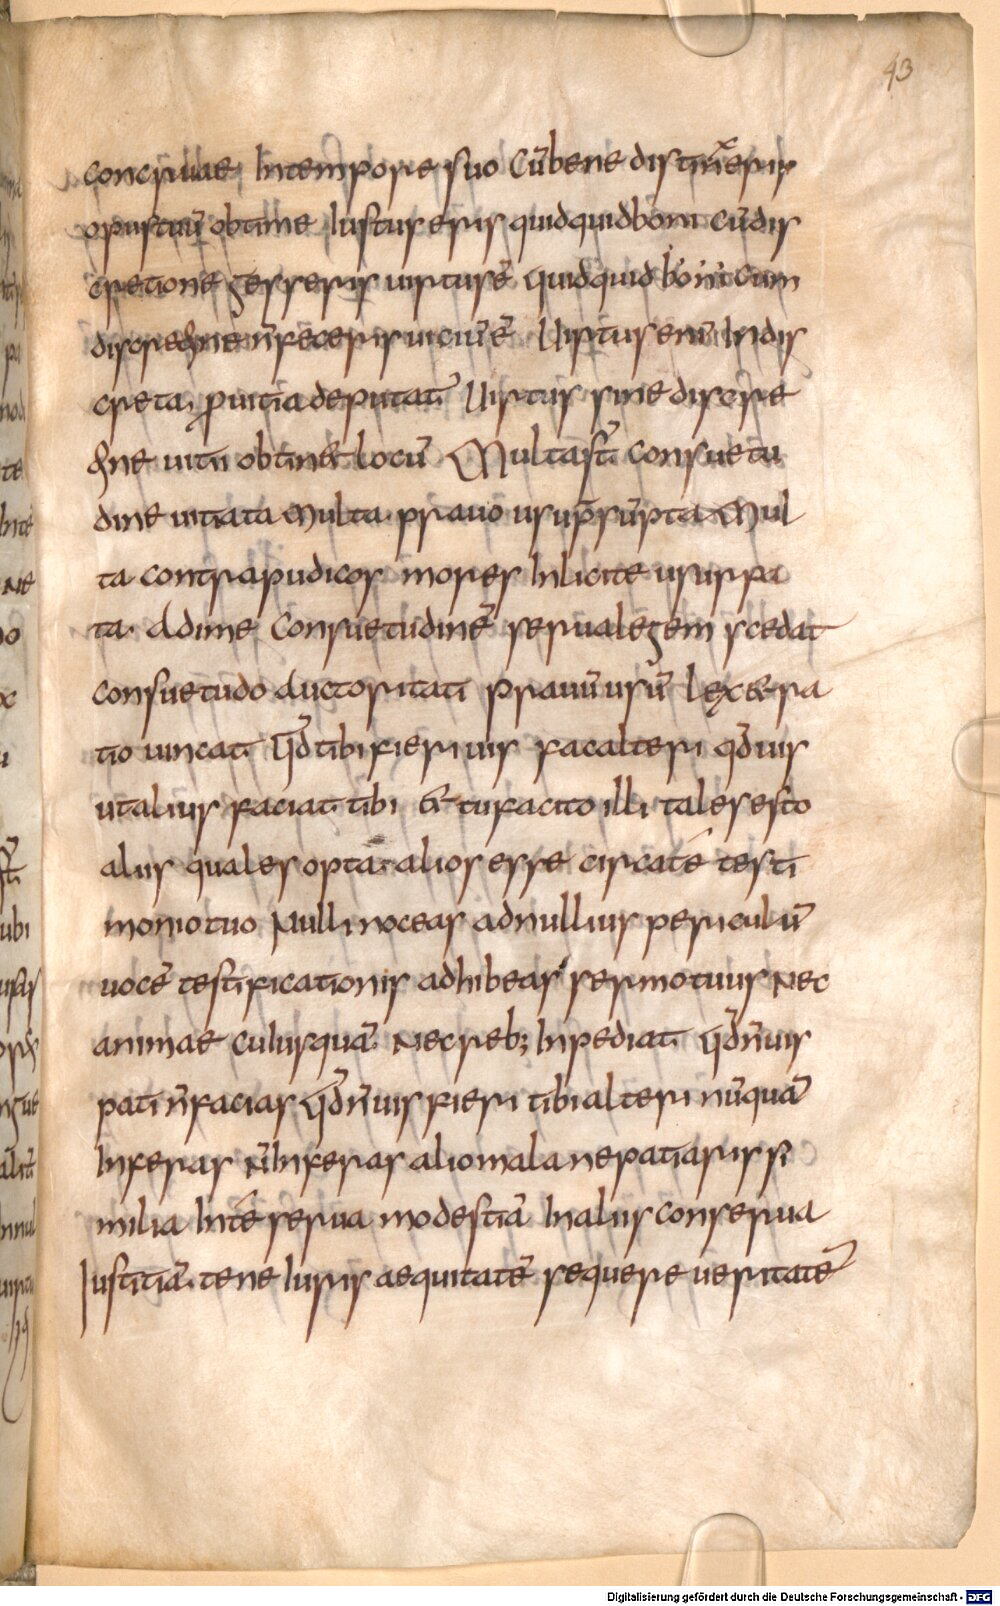 43
concruae Intempore suo Cūbene distinxeris
opustuū obtime Iustus eris quidquidboni cūdis
cretione gesseris uirtusē Quidquid boni cum
discreone n̄feceris uiciūē Uirtus enī Indis
creta ꝓuitia deputat̄ Uirtus sine discre
one uitii obtin& locū Multas̄t consuetu
dine uitiata Multa prauo usup̄sūpta Mul
ta contrapudicos mores Inlicite ususrpa
ta. Adime Consuetudinē serualegem scedat
consuetudo auctoritati prauūusū Lex&ra
tio uincat Qd̄tibifieri uis facalteri qd̄uis
utalius faciat tibi &tufacito illi tales esto
aliis quales opta. alios esse circatē testi
moniotuo Nulli noceas adnullius periculū
uocē testificationis adhibeas sermotuus Nec
animae cuiusquā Necreb; Inpediat Qd̄n̄uis
pati n̄facias Qd̄n̄uis fieri tibialteri nūquā
Inferas N̄Inferas aliomala nepatiaris si
milia Intē serua modestiā Inaliis conserua
Iustitiā. tene Iuris aequitatē sequere ueritatē
Digitalisierung gefördert durch die Deutsche Forschungsgemeinschaft - DFG